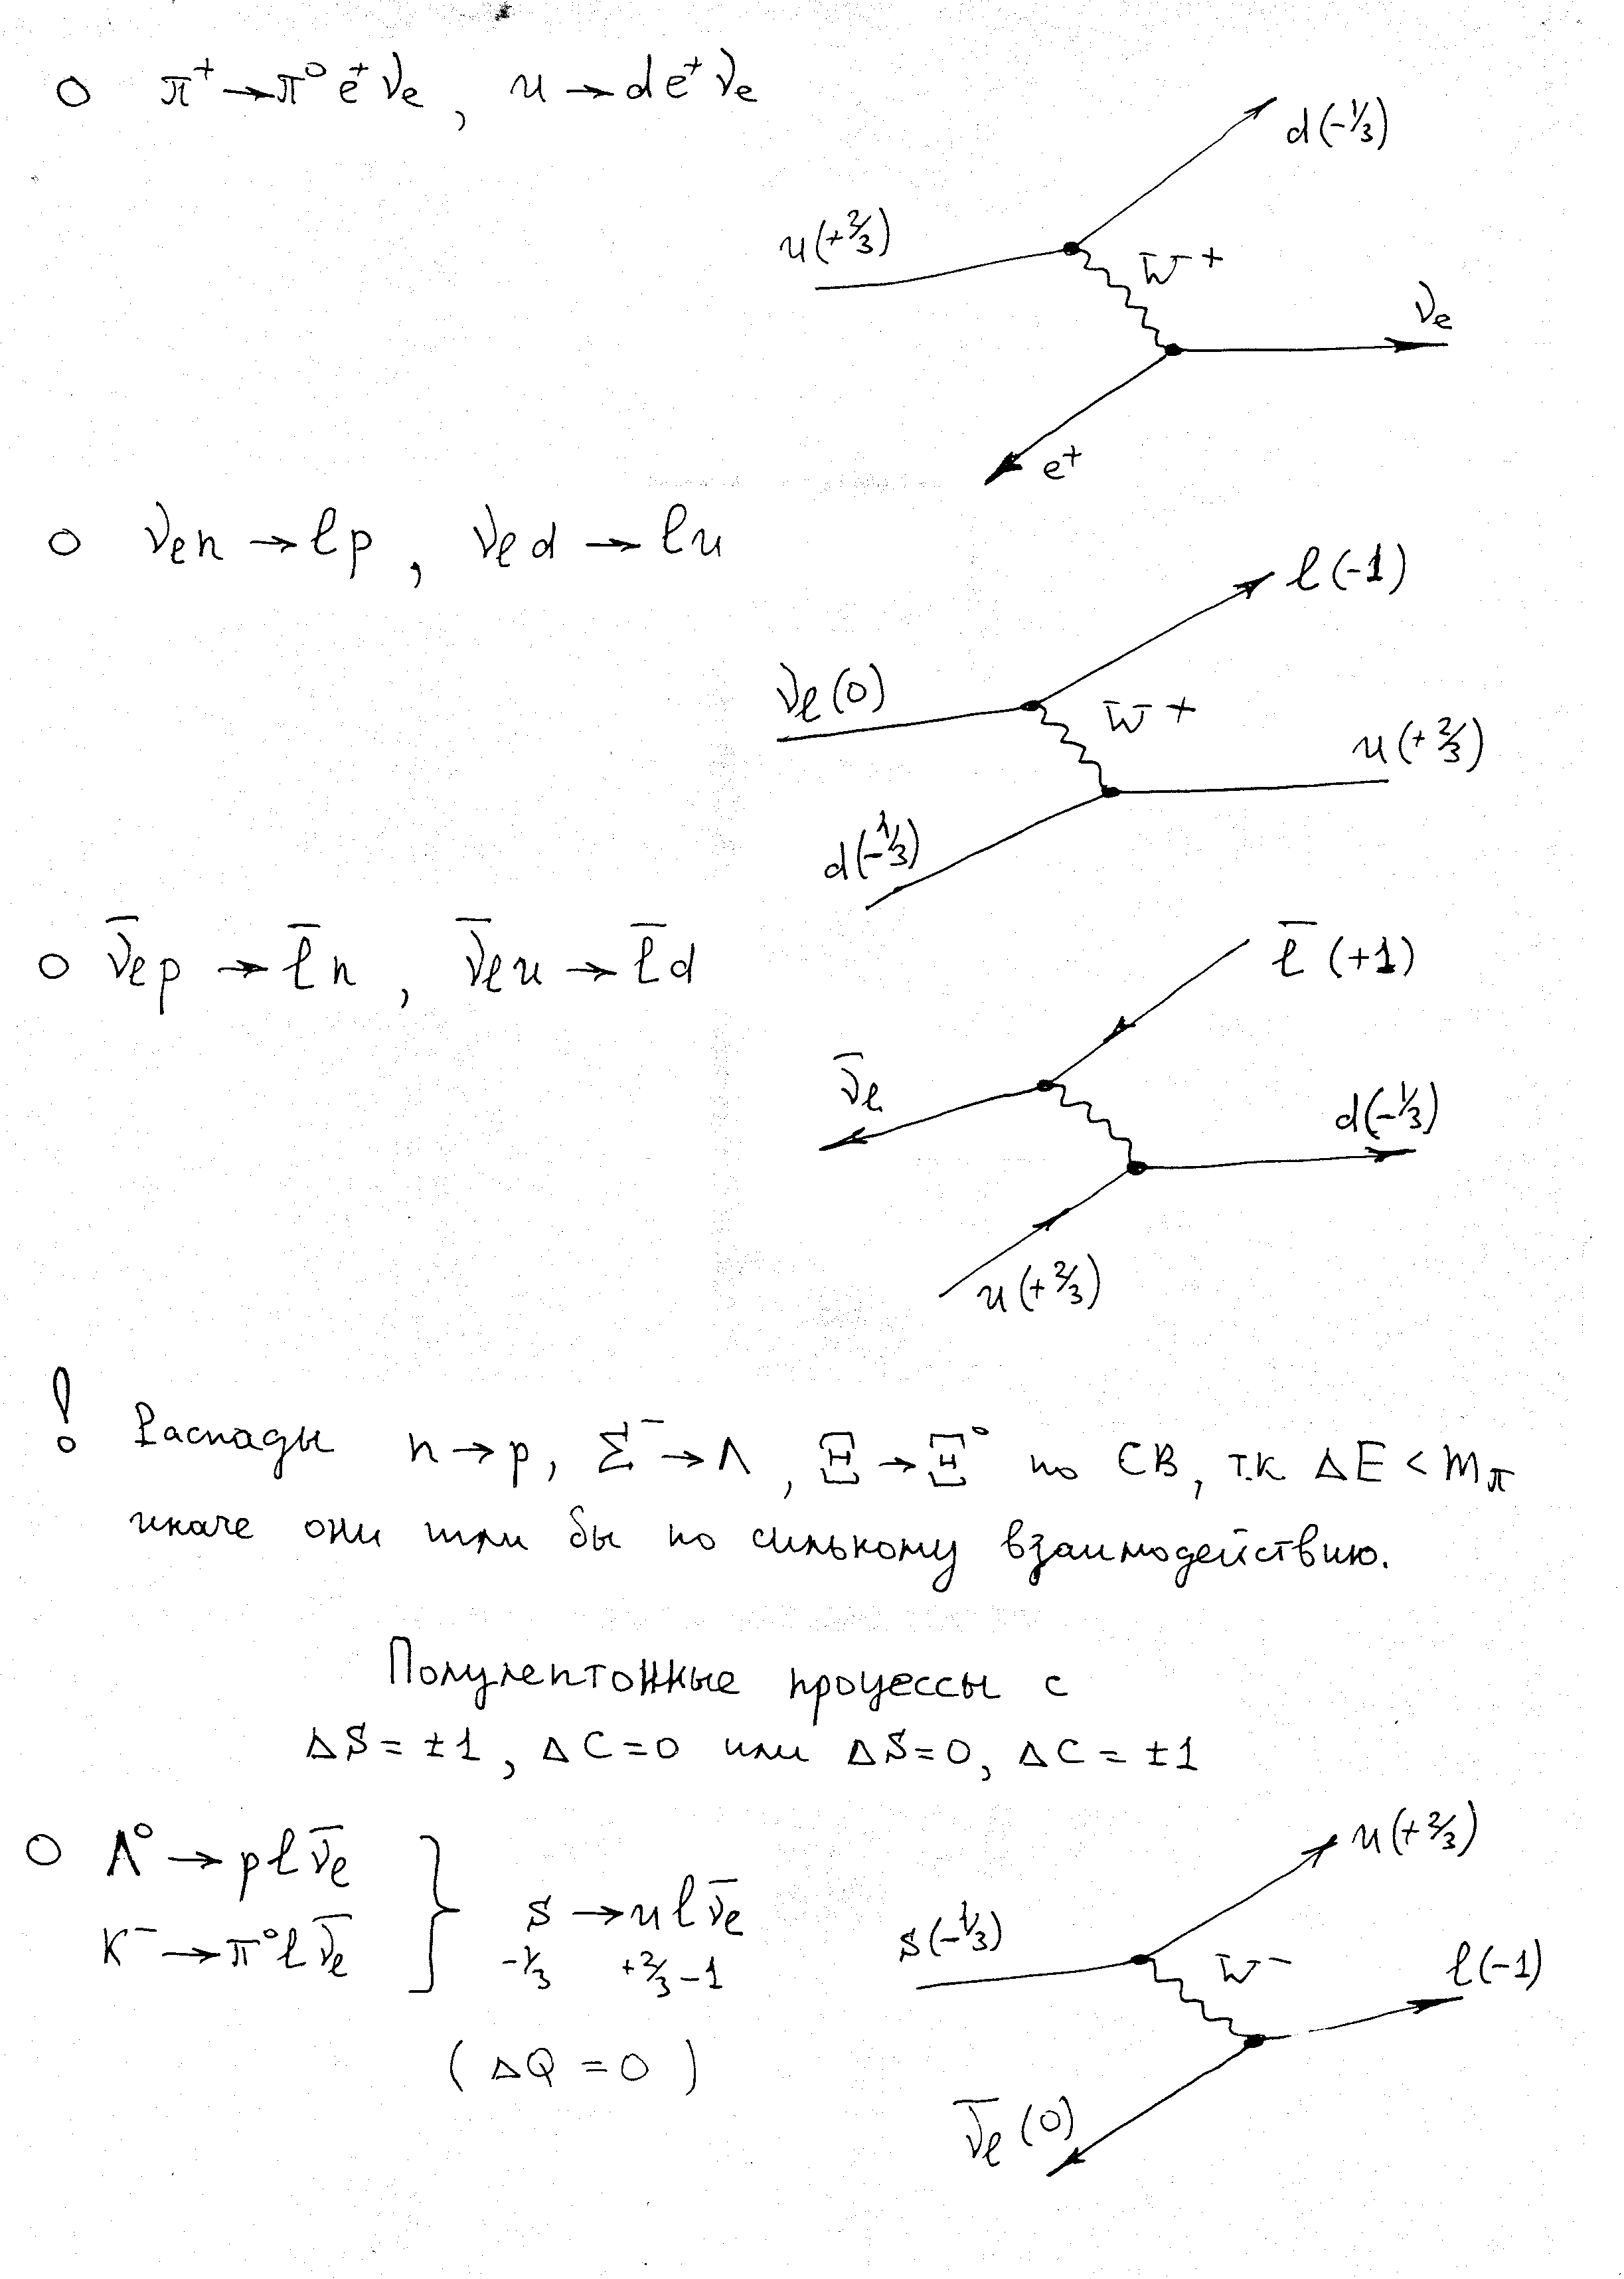 ○ π⁺ → π⁰ e⁺ νₑ , u → d e⁺ νₑ
d(-1/3)
u(+2/3)
W⁺
νₑ
e⁺
○ νₑn → ℓp , ν_ℓ d → ℓu
ℓ(-1)
ν_ℓ(0)
W⁺
u(+2/3)
d(-1/3)
○ ν̅_ℓ p → ℓ̅ n , ν̅_ℓ u → ℓ̅ d
ℓ̅ (+1)
ν̅_ℓ
d(-1/3)
u(+2/3)
! Распады n → p, Σ⁻ → Λ , Ξ → Ξ⁰ по СВ, т.к ΔE < m_π
иначе они шли бы по сильному взаимодействию.
Полулептонные процессы с
ΔS = ±1 , ΔC = 0 или ΔS = 0, ΔC = ±1
○ Λ⁰ → p ℓ ν̅_ℓ
K⁻ → π⁰ ℓ ν̅_ℓ
s → u ℓ ν̅_ℓ
-1/3 +2/3 -1
( ΔQ = 0 )
u(+2/3)
s(-1/3)
W⁻
ℓ(-1)
ν̅_ℓ(0)